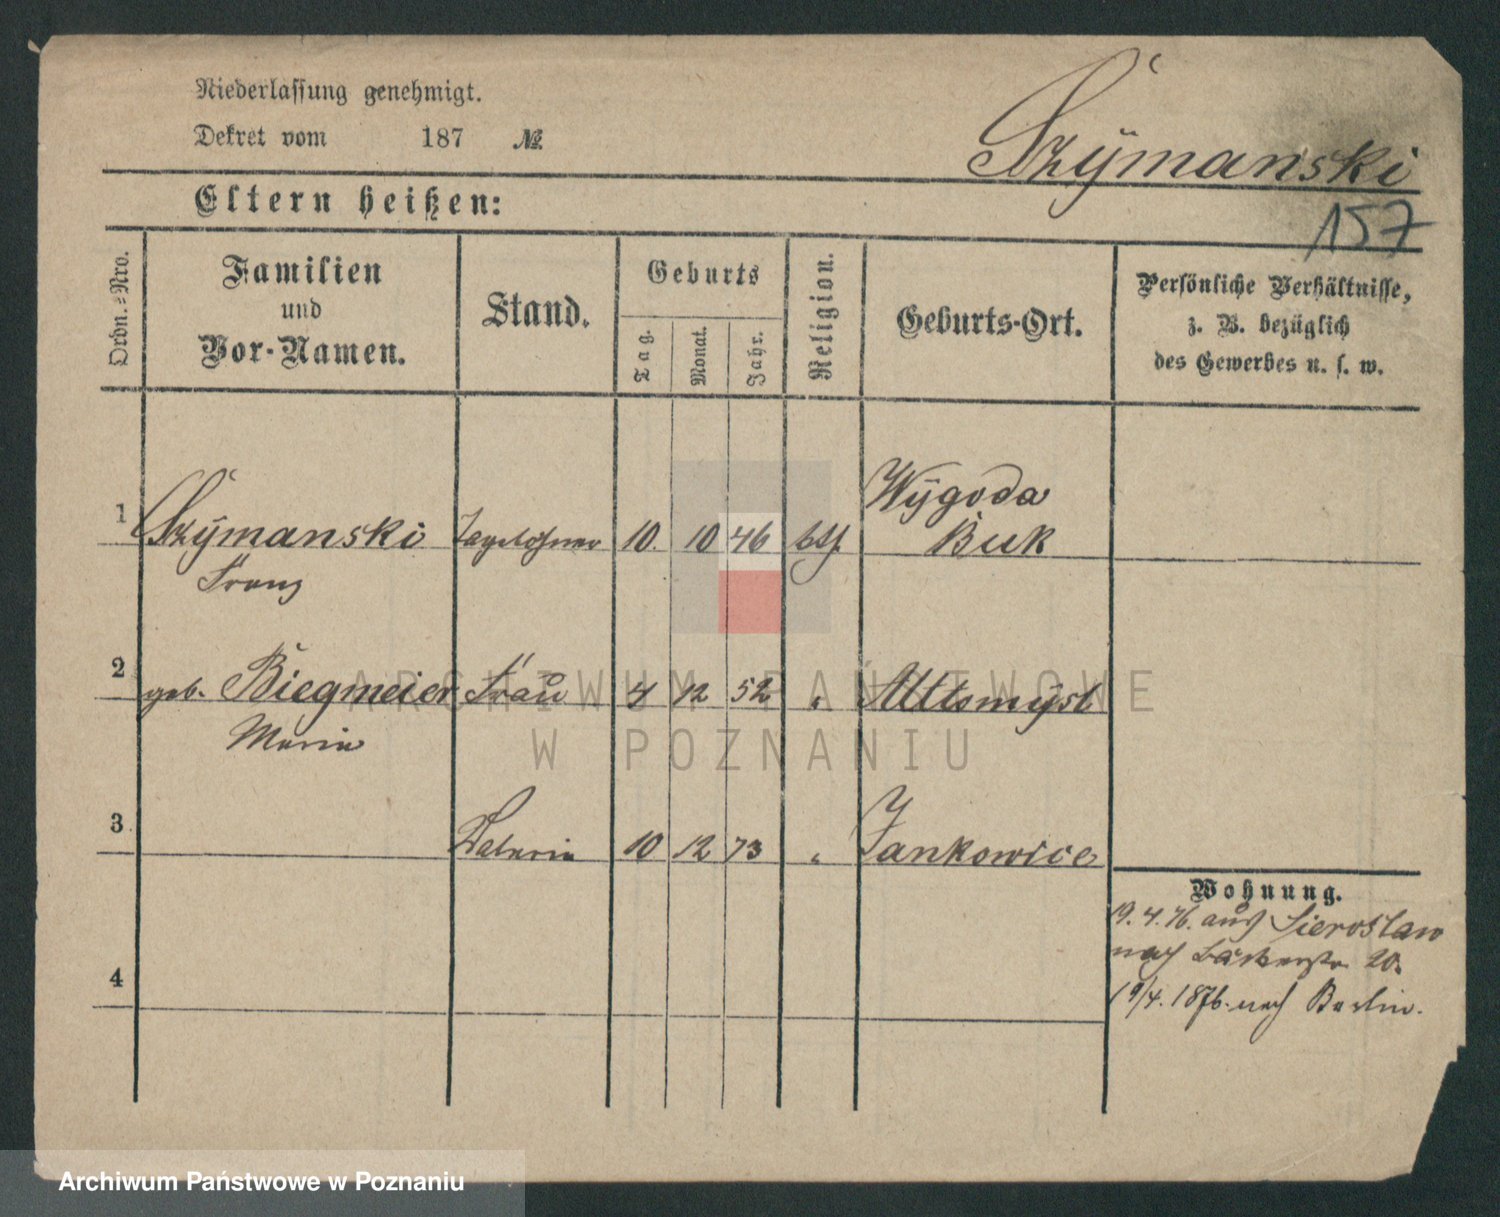 Niederlassung genehmigt.
Dekret vom 187 №
Szÿmanski
Eltern heißen:
157
Ordn.-Nro.
Familien
und
Vor-Namen.
Stand.
Geburts
Tag.
Monat.
Jahr.
Religion.
Geburts-Ort.
Persönliche Verhältnisse,
z. B. bezüglich
des Gewerbes u. s. w.
Wÿgoda
1 Szÿmanski Tagelohner 10. 10 46 Buk
Franz
2 geb. Biegmeier Frau 4 12 52 " Altsmysl
Maria
3 Valeria 10 12 73 " Jankowice
Wohnung.
19. 4. 76. aus Sieroslaw
nach Bäckerstr 20.
19/4. 1876. nach Berlin.
4
ARCHIWUM PAŃSTWOWE
W POZNANIU
Archiwum Państwowe w Poznaniu